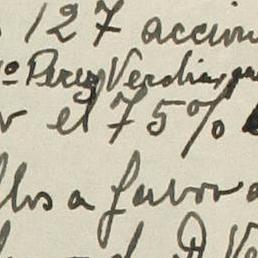 127 accion
º Perez Verdia, pa
el 75%
llos a favor